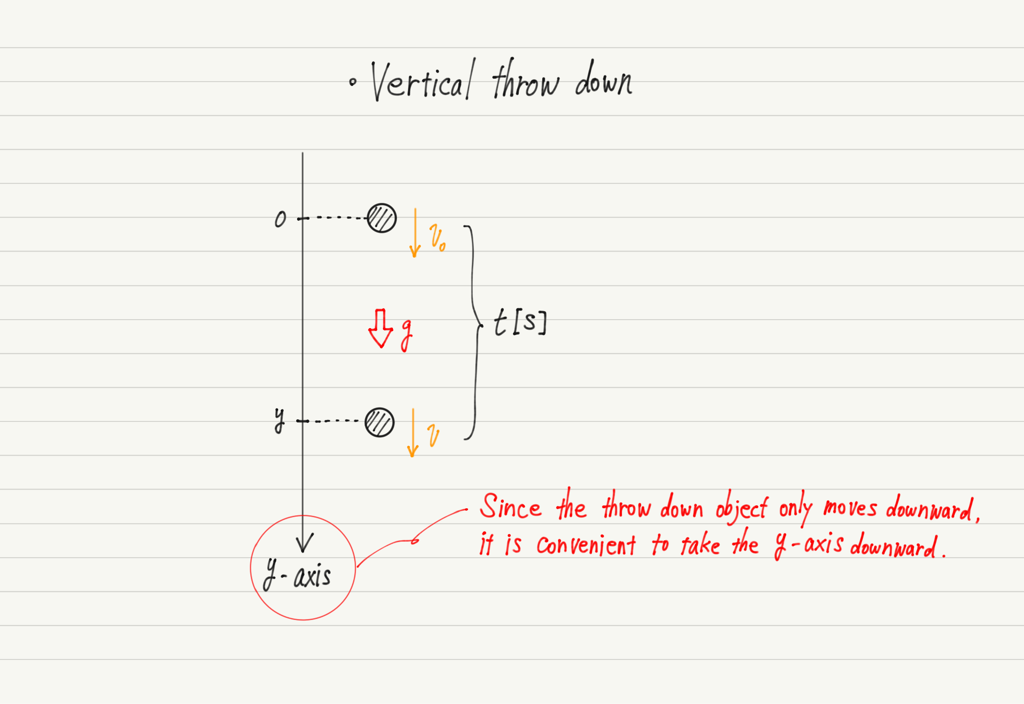 • Vertical throw down
0
v₀
g
t[s]
y
v
Since the throw down object only moves downward,
it is convenient to take the y-axis downward.
y-axis